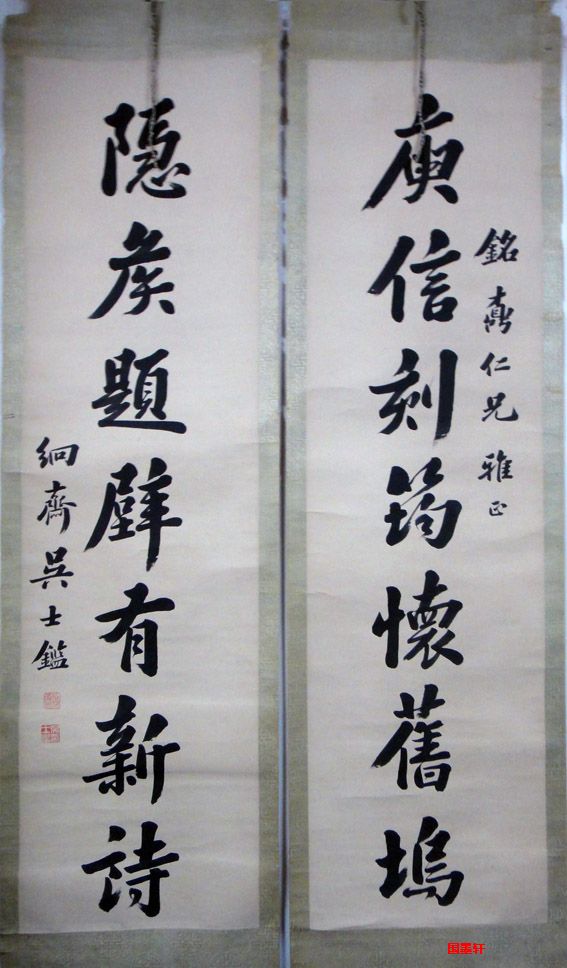 銘仁兄雅正
庾信刻筠懷舊塢
隱矦題壁有新詩
絅齋吳士鑑
国墨轩